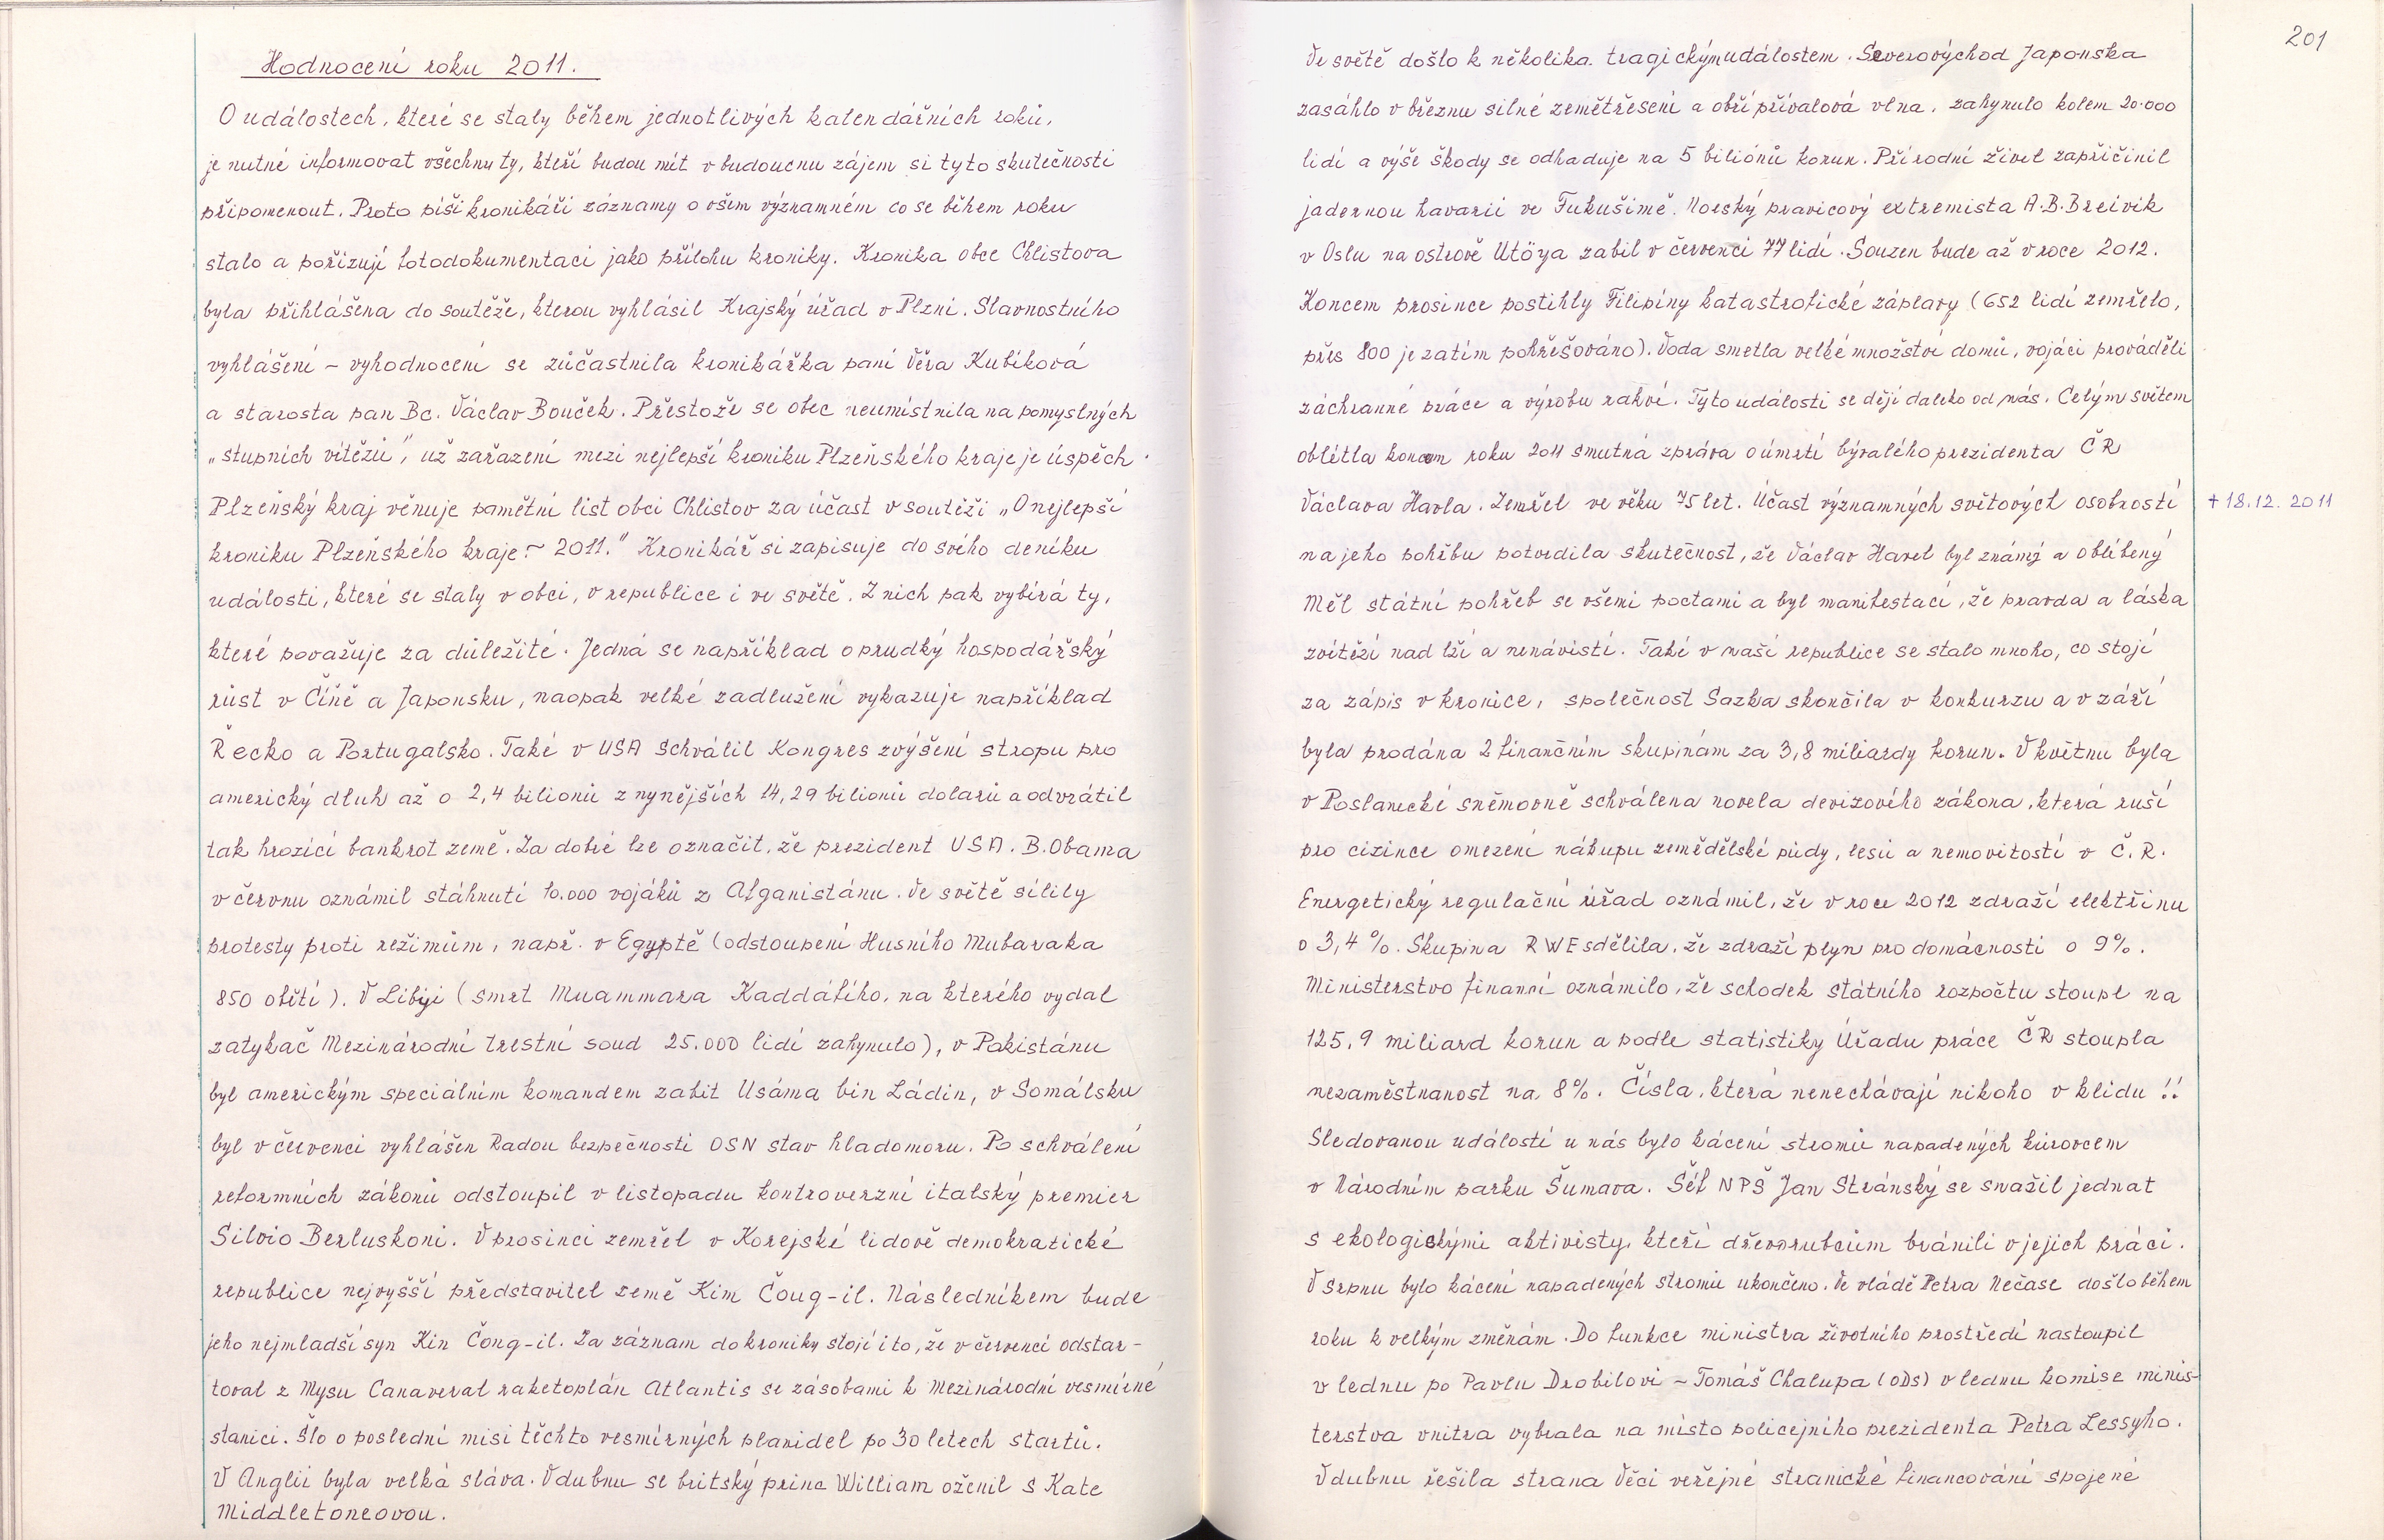 Hodnocení roku 2011.
O událostech, které se staly během jednotlivých kalendářních roků,
je nutné informovat všechny ty, kteří budou mít v budoucnu zájem si tyto skutečnosti
připomenout. Proto píší kronikáři záznamy o všem významném co se během roku
stalo a pořizují fotodokumentaci jako přílohu kroniky. Kronika obce Chlistova
byla přihlášena do soutěže, kterou vyhlásil Krajský úřad v Plzni. Slavnostního
vyhlášení – vyhodnocení se zúčastnila kronikářka paní Věra Kubíková
a starosta pan Bc. Václav Bouček. Přestože se obec neumístnila na pomyslných
„stupních vítězů", už zařazení mezi nejlepší kroniku Plzeňského kraje je úspěch.
Plzeňský kraj věnuje pamětní list obci Chlistov za účast v soutěži „O nejlepší
kroniku Plzeňského kraje – 2011." Kronikář si zapisuje do svého deníku
události, které se staly v obci, v republice i ve světě. Z nich pak vybírá ty,
které považuje za důležité. Jedná se například o prudký hospodářský
růst v Číně a Japonsku, naopak velké zadlužení vykazuje například
Řecko a Portugalsko. Také v USA schválil Kongres zvýšení stropu pro
americký dluh až o 2,4 bilionů z nynějších 14,29 bilionů dolarů a odvrátil
tak hrozící bankrot země. Za dobré lze označit, že prezident USA. B. Obama
v červnu oznámil stáhnutí 10.000 vojáků z Afganistánu. Ve světě sílily
protesty proti režimům, např. v Egyptě (odstoupení Husního Mubaraka
850 obětí). V Libyi (smrt Muammara Kaddáfího, na kterého vydal
zatykač Mezinárodní trestní soud 25.000 lidí zahynulo), v Pakistánu
byl americkým speciálním komandem zabit Usáma bin Ládin, v Somálsku
byl v červenci vyhlášen Radou bezpečnosti OSN stav hladomoru. Po schválení
reformních zákonů odstoupil v listopadu kontroverzní italský premier
Silvio Berluskoni. V prosinci zemřel v Korejské lidově demokratické
republice nejvyšší představitel země Kim Čoug-il. Následníkem bude
jeho nejmladší syn Kin Čong-il. Za záznam do kroniky stojí i to, že v červenci odstar-
toval z Mysu Canaveral raketoplán Atlantis se zásobami k Mezinárodní vesmírné
stanici. Šlo o poslední misi těchto vesmírných plavidel po 30 letech startů.
V Anglii byla velká sláva. V dubnu se britský princ William oženil s Kate
Middletoneovou.
201
Ve světě došlo k několika tragickým událostem. Severovýchod Japonska
zasáhlo v březnu silné zemětřesení a obří přívalová vlna, zahynulo kolem 20.000
lidí a výše škody se odhaduje na 5 biliónů korun. Přírodní živel zapřičinil
jadernou havarii ve Fukušimě. Norský pravicový extremista A.B.Breivik
v Oslu na ostrově Utöya zabil v červenci 77 lidí. Souzen bude až v roce 2012.
Koncem prosince postihly Filipíny katastrofické záplavy (652 lidí zemřelo,
přes 800 je zatím pohřešováno). Voda smetla velké množství domů, vojáci prováděli
záchranné práce a výrobu rakví. Tyto události se dějí daleko od nás. Celým světem
oblétla koncem roku 2011 smutná zpráva o úmrtí bývalého prezidenta ČR
Václava Havla. Zemřel ve věku 75 let. Účast významných světových osobností
† 18.12. 2011
na jeho pohřbu potvrdila skutečnost, že Václav Havel byl známý a oblíbený
Měl státní pohřeb se všemi poctami a byl manifestací, že pravda a láska
zvítězí nad lží a nenávistí. Také v naší republice se stalo mnoho, co stojí
za zápis v kronice, společnost Sazka skončila v konkurzu a v září
byla prodána 2 finančním skupinám za 3,8 miliardy korun. V květnu byla
v Poslanecké sněmovně schválena novela devizového zákona, která ruší
pro cizince omezení nákupu zemědělské půdy, lesů a nemovitostí v Č.R.
Energetický regulační úřad oznámil, že v roce 2012 zdraží elektřinu
o 3,4 %. Skupina RWE sdělila, že zdraží plyn pro domácnosti o 9%.
Ministerstvo financí oznámilo, že schodek státního rozpočtu stoupl na
125,9 miliard korun a podle statistiky Úřadu práce ČR stoupla
nezaměstnanost na 8%. Čísla, která nenechávají nikoho v klidu !!
Sledovanou událostí u nás bylo kácení stromů napadených kůrovcem
v Národním parku Šumava. Šéf NPŠ Jan Stránský se snažil jednat
s ekologickými aktivisty, kteří dřevorubcům bránili v jejich práci.
V srpnu bylo kácení napadených stromů ukončeno. Ve vládě Petra Nečase došlo během
roku k velkým změnám. Do funkce ministra životního prostředí nastoupil
v lednu po Pavlu Drobilovi – Tomáš Chalupa (ODS) v lednu komise minis-
terstva vnitra vybrala na místo policejního prezidenta Petra Lessyho.
V dubnu řešila strana Věci veřejné stranické financování spojené